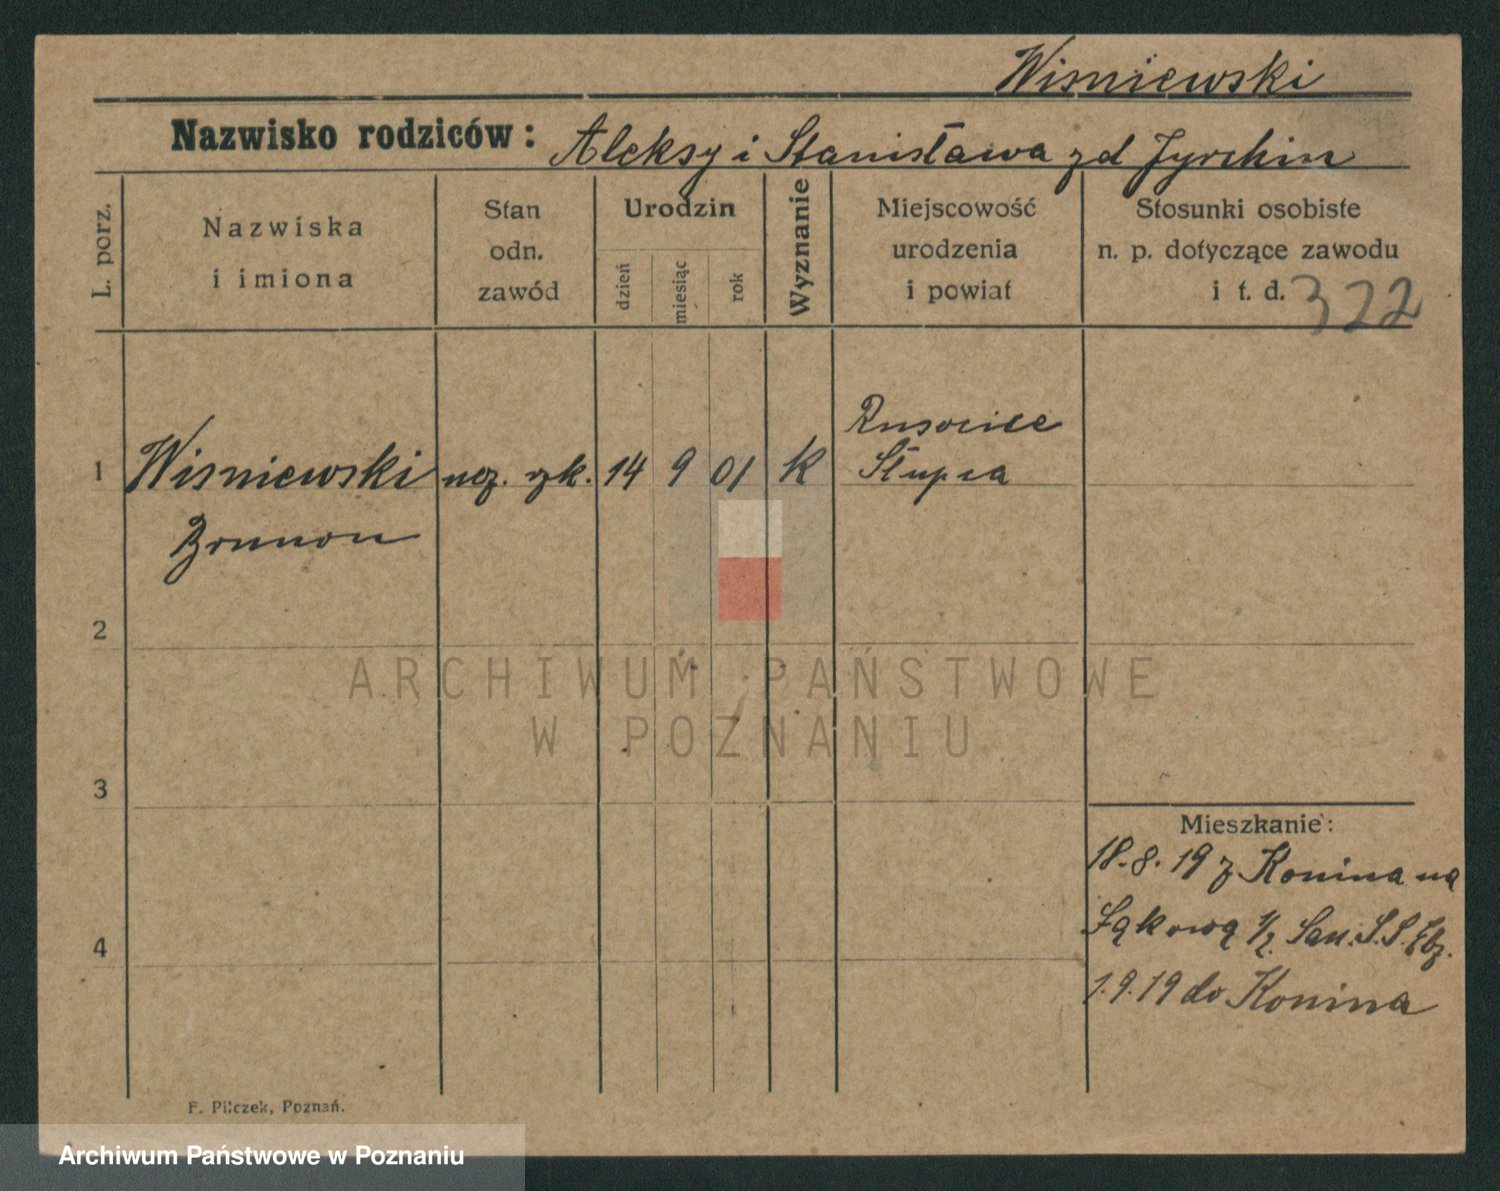 Wisniewski
Nazwisko rodziców: Aleksy i Stanisława zd
L. porz.
Nazwiska
i imiona
Stan
odn.
zawód
Urodzin
dzień
miesiąc
rok
Wyznanie
Miejscowość
urodzenia
i powiat
Stosunki osobiste
n. p. dotyczące zawodu
i t. d. 322
Rusocice
1 Wisniewski ucz. szk. 14 9 01 K Słupca
Brunon
2
ARCHIWUM PAŃSTWOWE
W POZNANIU
3
Mieszkanie:
18.8.19 z Konina na
4 Łąkową 1/2. San. S.S. Elż.
1.9.19 do Konina
F. Pilczek, Poznań.
Archiwum Państwowe w Poznaniu